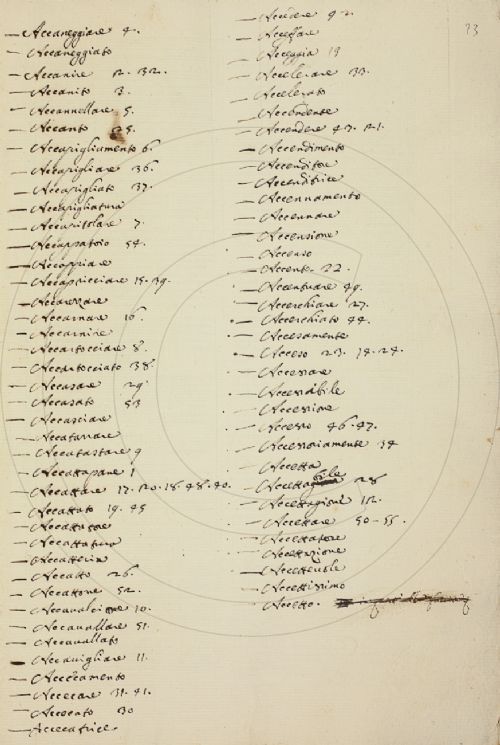 73
— Accaneggiare 4.
— Accaneggiato
— Accanire 2. 32.
— Accanito 3.
— Accannellare 5.
— Accanto 25.
— Accapigliamento 6.
— Accapigliare 36.
— Accapigliato 37.
— Accapigliatura
— Accapitolare 7.
— Accappatoio 54.
— Accappiare
— Accapricciare 15. 39.
— Accarezzare
— Accarnare 16.
— Accarnire
— Accartocciare 8.
— Accartocciato 38.
— Accasare 29.
— Accasato 53
— Accasciare
— Accatarrare
— Accatastare 9
— Accattapane 1
— Accattare 17. 20. 18. 48. 40.
— Accattato 19. 45
— Accattatore
— Accattatura
— Accatteria
— Accatto 26.
— Accattone 52.
— Accavalcione 10.
— Accavallare 51.
— Accavallato
— Accavigliare 11.
— Accecamento
— Accecare 31. 41.
— Accecato 30
— Accecatrice.
— Accedere 42.
— Acceffare
— Acceggia 13
— Accelerare 33.
— Accelerato
— Accendente
— Accendere 47. 21.
— Accendimento
— Accenditore
— Accenditrice
— Accennamento
— Accennare
— Accensione
— Accenso
— Accento. 22.
— Accentuare 49.
— Accerchiare 27.
— Accerchiato 44.
— Accesamente
— Acceso 23. 14. 24.
— Accessare
— Accessibile
— Accessione
— Accesso 46. 47.
— Accessoriamente 34
— Accetta
— Accettabile 28
— Accettagione 12.
— Accettare 50 - 55.
— Accettatore
— Accettazione
— Accettevole
— Accettissimo
— Accetto.